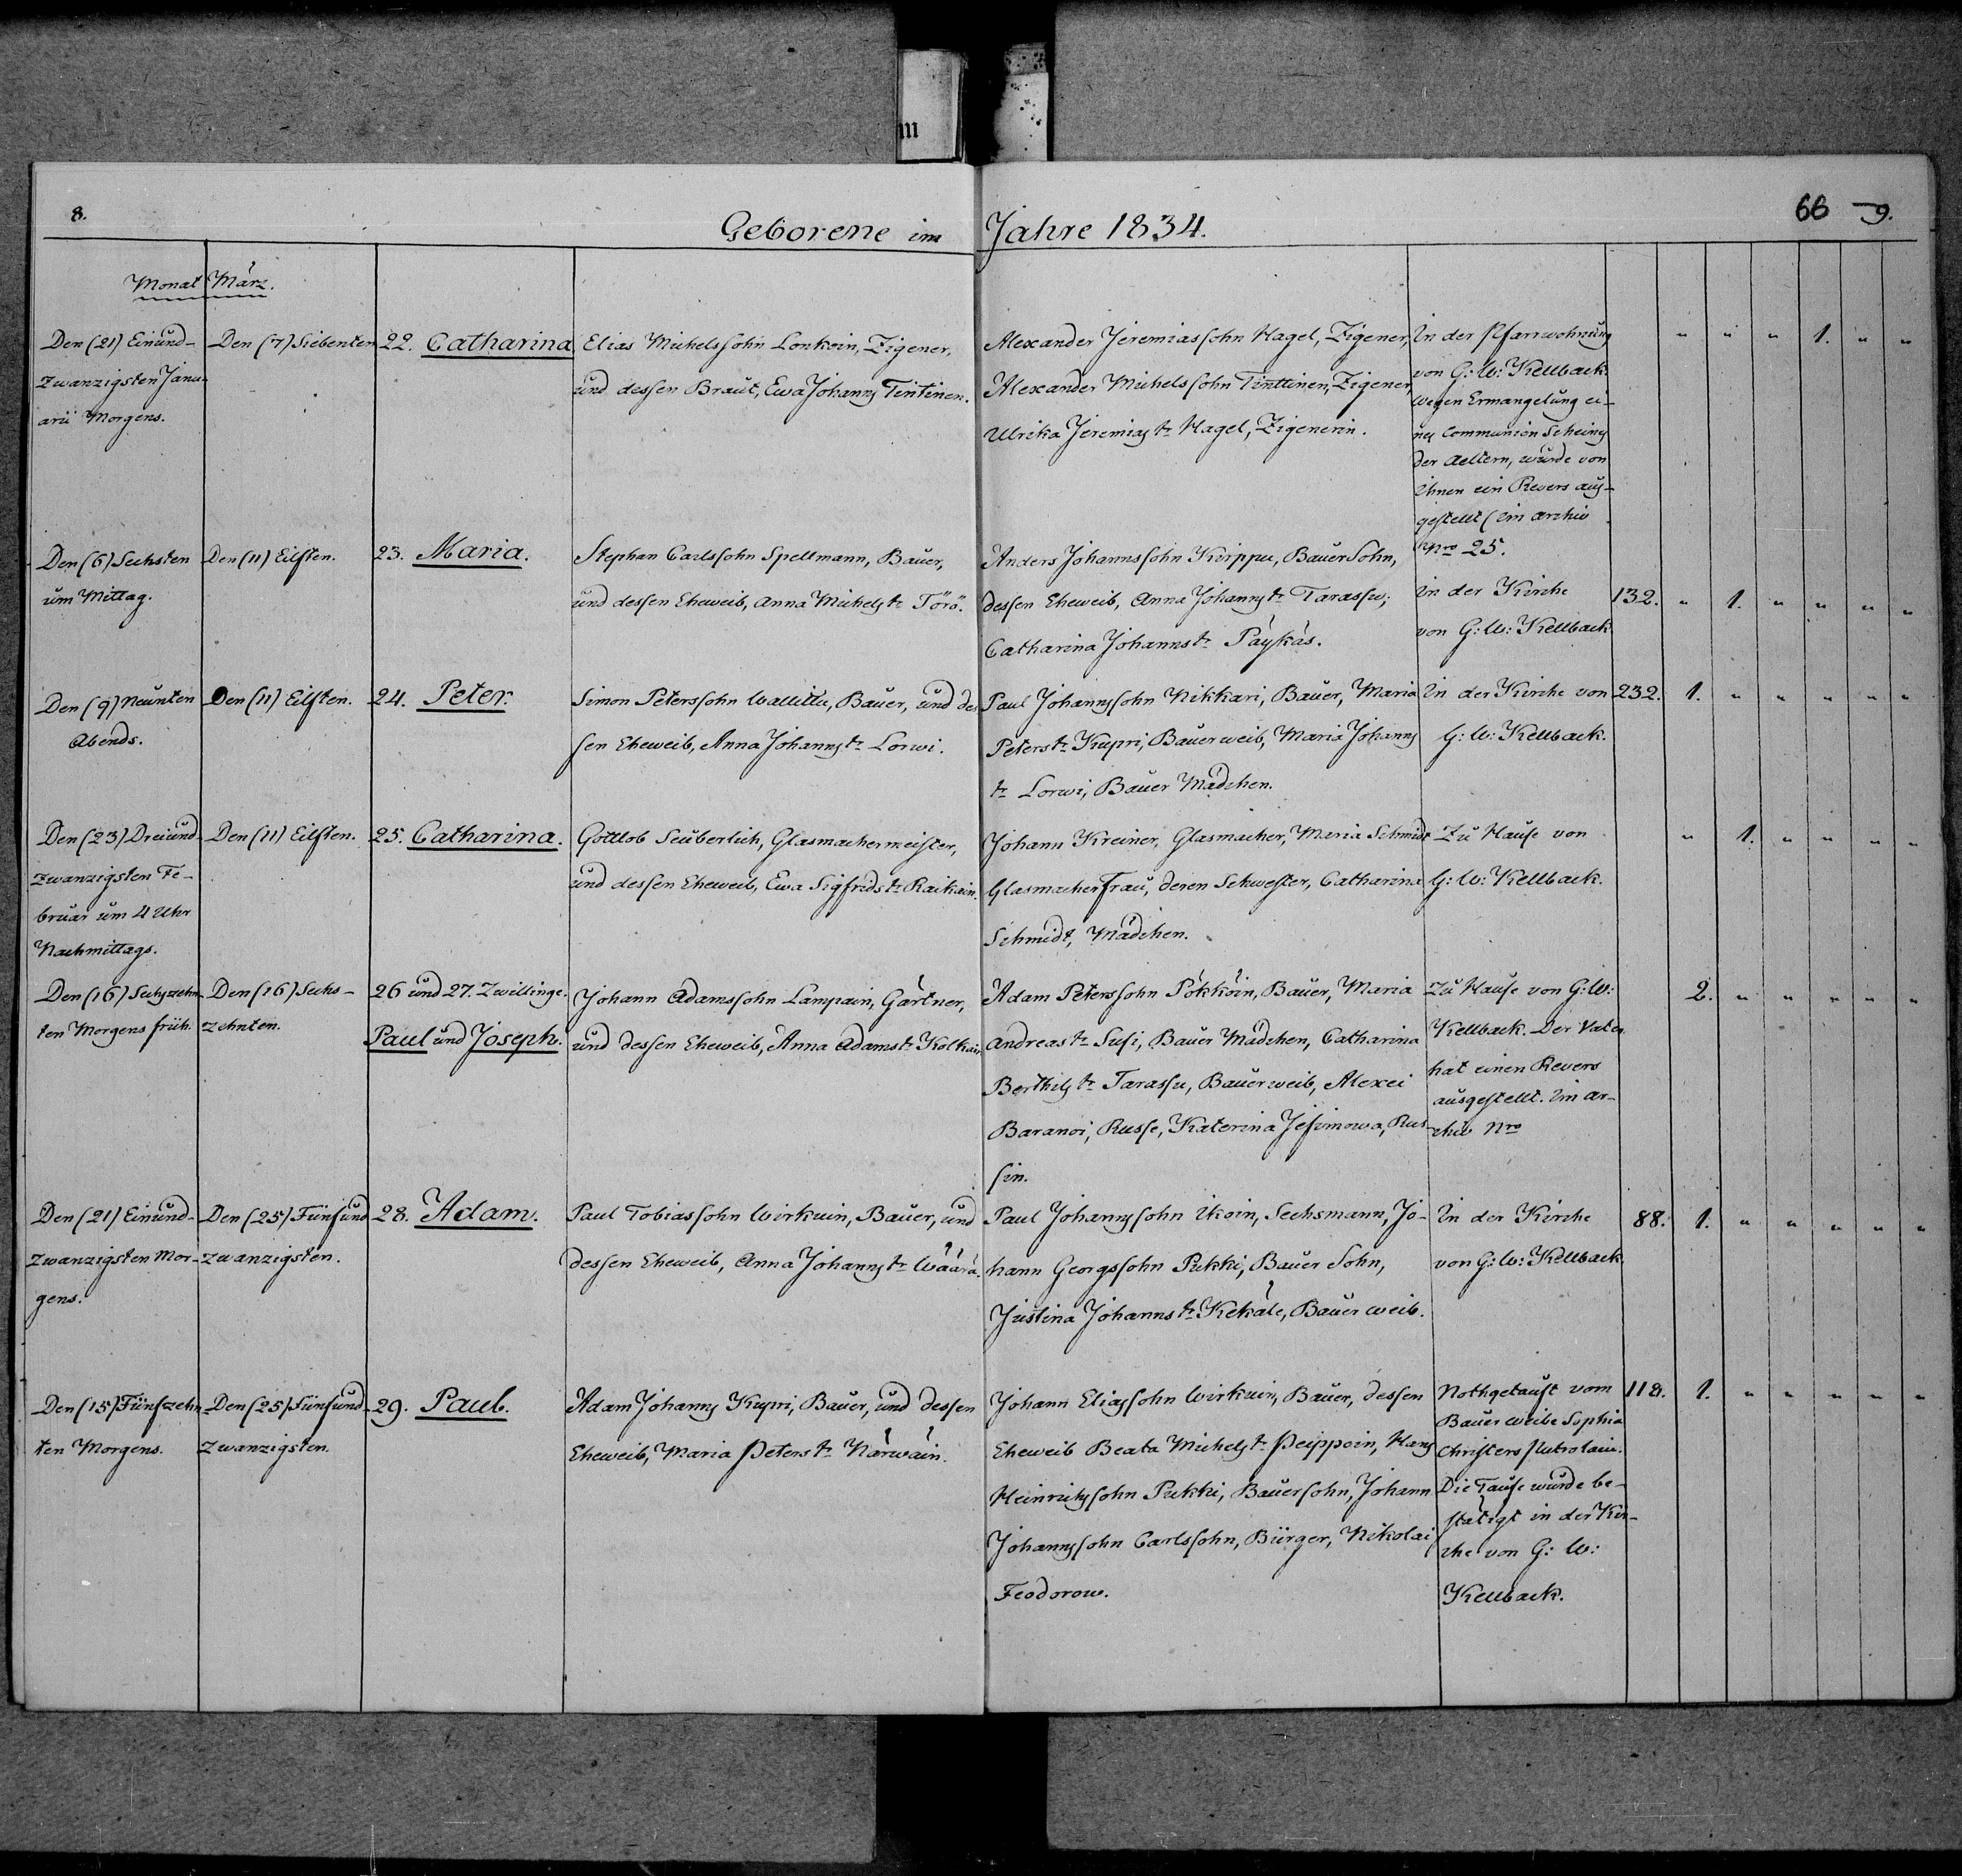 8.
Geborene im Jahre 1834.
66 9.
Monat März.
Den (21) Einund-
zwanzigsten Janu-
arii Morgens.
Den (7) Siebenten
22. Catharina
Elias Michelssohn Lonkoin, Zigener,
und dessen Braut, Ewa Johanns Tintinen.
Alexander Jeremiassohn Hagel, Zigener,
Alexander Michelssohn Tinttinen, Zigener,
Ulrika Jeremias tr Hagel, Zigenerin.
In der Pfarrwohnung
von G: W: Kellback.
Wegen Ermangelung ei-
nes Communion Scheins
der Aeltern, wurde von
ihnen ein Revers aus-
gestellt (im Archiv
Nro 25.
" " " 1. " "
Den (6) Sechsten
um Mittag.
Den (11) Eilften.
23. Maria.
Stephan Carlssohn Spellmann, Bauer,
und dessen Eheweib, Anna Michels tr Törö.
Anders Johannssohn Kirppu, Bauer Sohn,
dessen Eheweib, Anna Johanns tr Tarassu;
Catharina Johanns tr Päykäs.
In der Kirche
von G: W: Kellback
132. " 1. " " " "
Den (9) Neunten
Abends.
Den (11) Eilften.
24. Peter.
Simon Peterssohn Wallittu, Bauer, und des
sen Eheweib, Anna Johanns tr Lorwi.
Paul Johannssohn Nikkari, Bauer, Maria
Peters tr Kupri, Bauerweib, Maria Johanns
tr Lorwi, Bauer Mädchen.
In der Kirche von
G: W: Kellback.
232. 1. " " " " "
Den (23) Dreiund-
zwanzigsten Fe-
bruar um 4 Uhr
Nachmittags.
Den (11) Eilften.
25. Catharina.
Gottlob Seuberlich, Glasmachermeister,
und dessen Eheweib, Ewa Sigfrids tr Raikain.
Johann Kreiner, Glasmacher, Maria Schmidt
Glasmacher Frau, deren Schwester, Catharina
Schmidt, Mädchen.
Zu Hause von
G: W: Kellback.
" 1. " " " "
Den (16) Sechszehn-
ten Morgens früh.
Den (16) Sechs-
zehnten.
26 und 27. Zwillinge.
Paul und Joseph.
Johann Adamssohn Lampain, Gärtner,
und dessen Eheweib, Anna Adams tr Kolkain
Adam Peterssohn Pökköin, Bauer, Maria
Andreas tr Susi, Bauer Mädchen, Catharina
Berthils tr Tarassu, Bauerweib, Alexei
Baranoi, Russe, Katerina Jefimowa, Rus-
sin.
Zu Hause von G: W:
Kellback. Der Vater
hat einen Revers
ausgestellt. Im Ar-
chiv Nro
2. " " " " "
Den (21) Einund-
zwanzigsten Mor-
gens.
Den (25) Fünfund
zwanzigsten.
28. Adam.
Paul Tobiassohn Wirkuin, Bauer, und
dessen Eheweib, Anna Johanns tr Wäärä.
Paul Johannssohn Ikoin, Sechsmann, Jo-
hann Georgssohn Pukki, Bauer Sohn,
Justina Johanns tr Kekäle, Bauer weib.
In der Kirche
von G: W: Kellback.
88. 1. " " " " "
Den (15) Fünfzehn-
ten Morgens.
Den (25) Fünfund-
zwanzigsten.
29. Paul.
Adam Johanns Kupri, Bauer, und dessen
Eheweib, Maria Peters tr Närwäin.
Johann Eliassohn Wirkuin, Bauer, dessen
Eheweib Beata Michels tr Peippoin, Hans
Heinrichssohn Pukki, Bauersohn, Johann
Johannssohn Carlssohn, Bürger, Nikolai
Feodorow.
Nothgetauft vom
Bauer weibe Sophia
Christers Putrolain.
Die Taufe wurde be-
stätigt in der Kir-
che von G: W:
Kellback.
118. 1. " " " " "